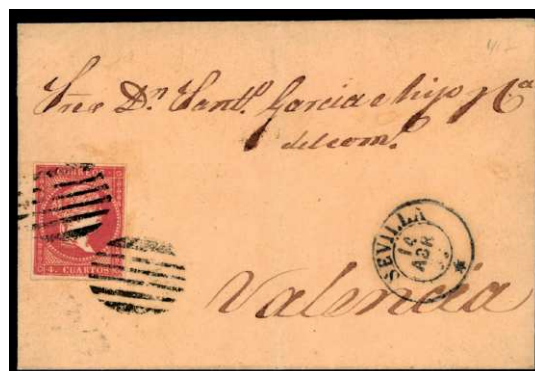 Sres Dn Santo. Garcia e hijo y Ca
del com.
CORREOS
4. CUARTOS
SEVILLA
ABR
Valencia